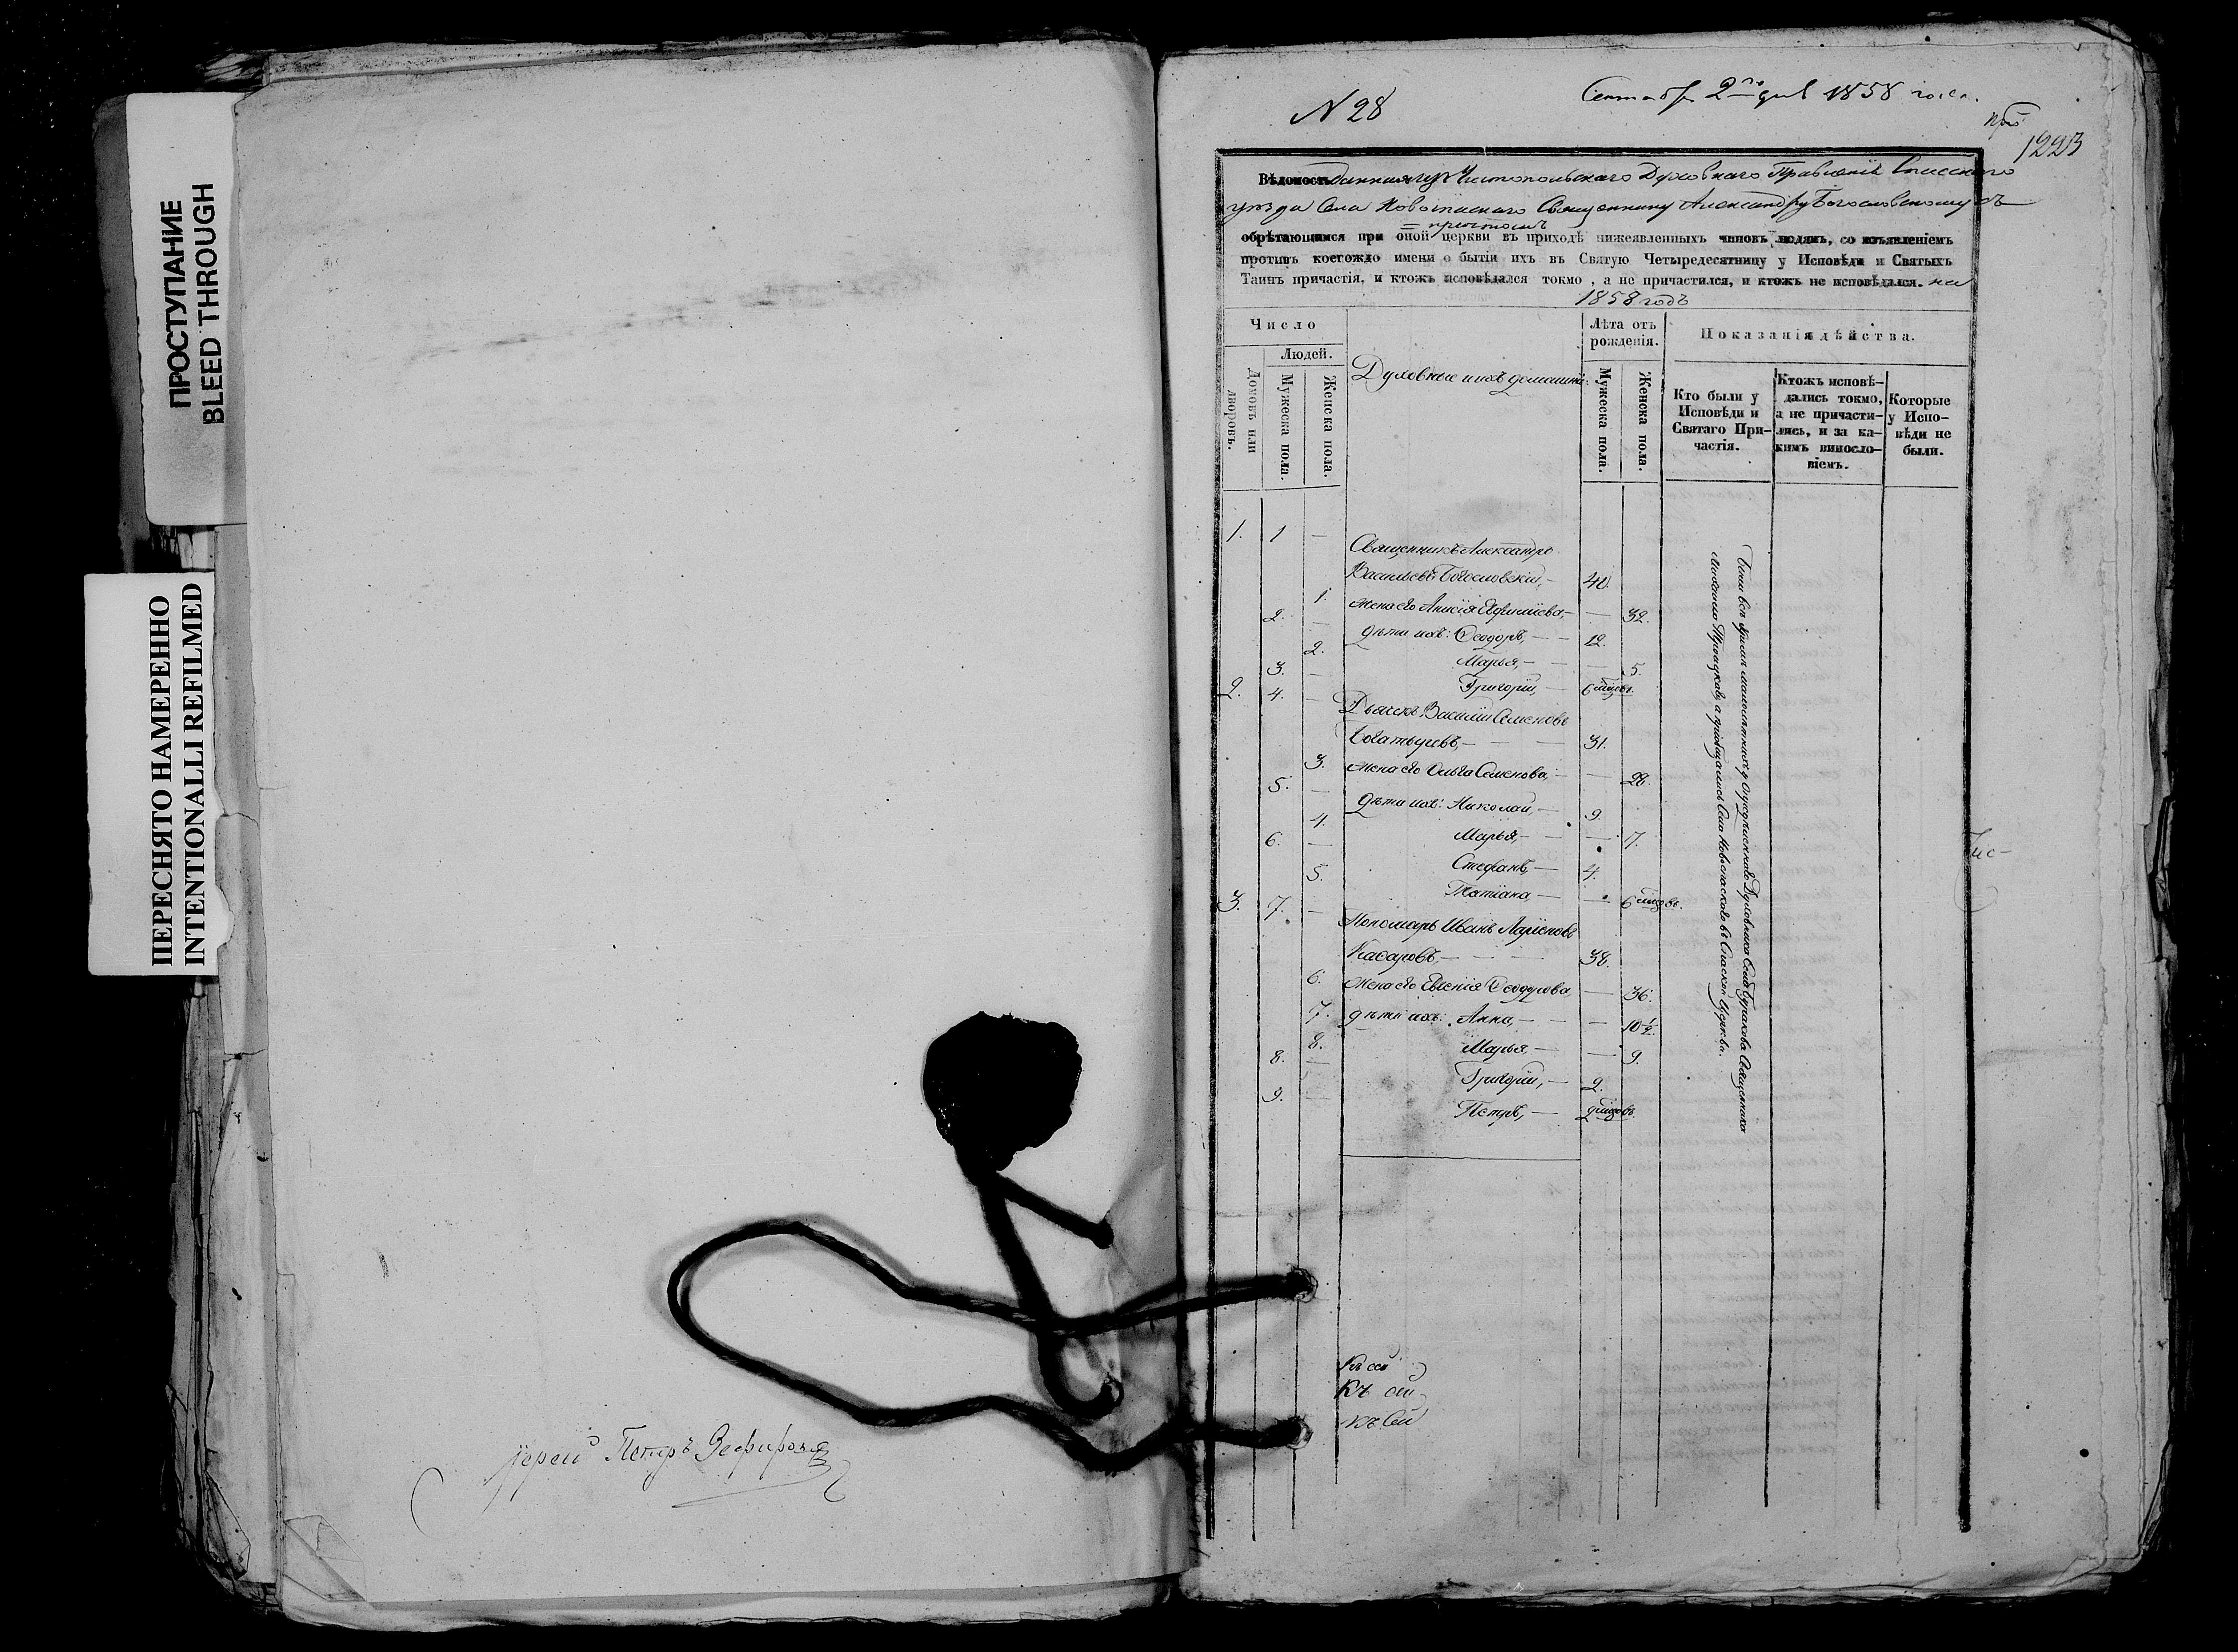 ПРОСТУПАНИЕ
BLEED THROUGH
ПЕРЕСНЯТО НАМЕРЕННО
INTENTIONALLI REFILMED
Іерей Петръ Зефировъ
N 28
1858 года.
1223
Вѣдомость данная изъ Чистопольскаго Духовнаго Правленія Спасскаго
уѣзда Села Новоспаскаго Священнику Александру Богословскому съ
причтомъ
обрѣтающимся при оной церкви въ приходѣ нижеявленныхъ чиновъ людямъ, со изъявленіемъ
противъ коегождо имени о бытіи ихъ въ Святую Четыредесятницу у Исповѣди и Святыхъ
Таинъ причастія, и ктожъ исповѣдался токмо, а не причастился, и ктожъ не исповѣдался. на
1858 годъ
Число
Лѣта отъ
рожденія.
Показанія дѣйства.
Людей.
Домовъ или
дворовъ.
Мужеска пола.
Женска пола.
Духовные и ихъ домашніе:
Мужеска пола.
Женска пола.
Кто были у
Исповѣди и
Святаго При-
частія.
Ктожъ исповѣ-
дались токмо,
а не причасти-
лись, и за ка-
кимъ винословіемъ.
Которые
у Испо-
вѣди не
были.
1. 1 — Священникъ Александръ
Васильевъ Богословскій, —
1. жена его Анисія Ефимiева, — — 32.
2. — дѣти ихъ: Ѳеодоръ, — — 12.
2. Марья, — — — 5.
3. — Григорій, — 6 мцовъ.
2. 4. — Дьячекъ Василій Семеновъ
Богатыревъ, — — — 31.
3. жена его Ольга Семенова, — — 28.
5. — дѣти ихъ: Николай, — 9.
4. Марья, — — — 7.
6. — Стефанъ, — 4.
5. Татіана — — 6 мцовъ.
3. 7. — Пономарь Иванъ Ларіоновъ
38.
6. жена его Евгенія Ѳеодорова, — 36.
7. дѣти ихъ: Анна, — — — 10 ½.
8. Марья — — 9.
8. — Григорій, — 2.
9. — Петръ, — 2 мцовъ.
Къ сей
Къ сей
Къ сей